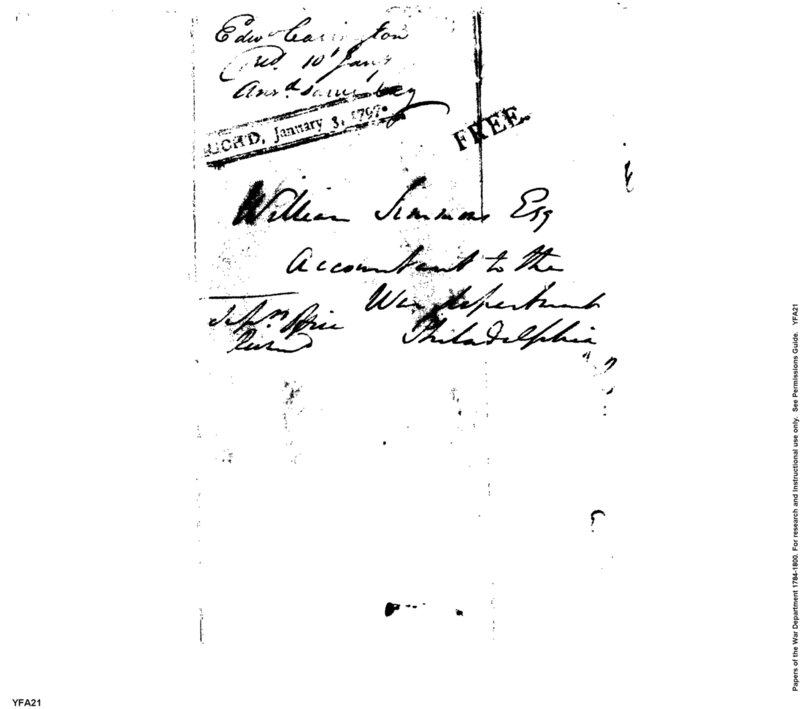 Edwd Carrington
Red. 10th Jany
Ansd. same day
RICH'D, January 3, 1797.
FREE.
William Simmons Esq
Accountant to the
War department
Philadelphia
YFA21
Papers of the War Department 1784-1800. For research and Instructional use only. See Permissions Guide. YFA21